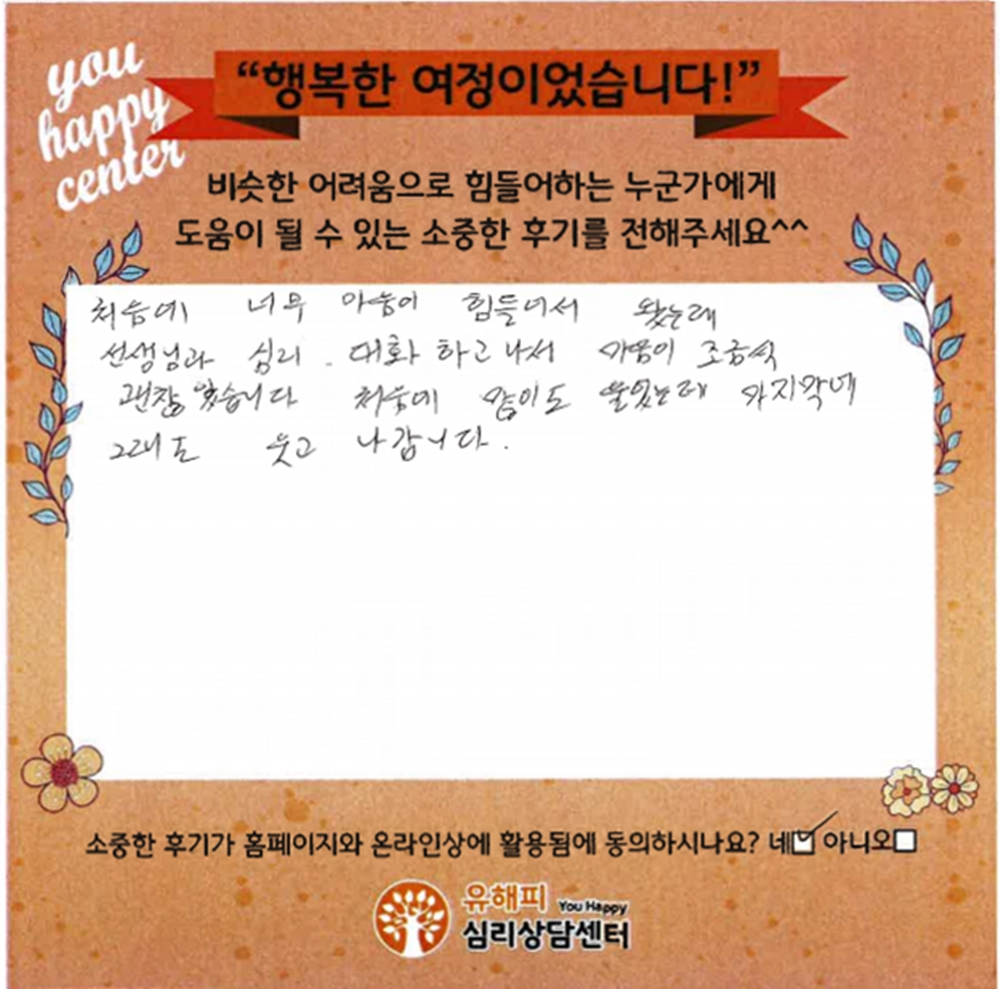 you
happy
center
“행복한 여정이었습니다!”
비슷한 어려움으로 힘들어하는 누군가에게
도움이 될 수 있는 소중한 후기를 전해주세요^^
처음에 너무 마음이 힘들어서 왔는데
선생님과 심리. 대화 하고나서 마음이 조금식
괜찮았습니다 처음에 많이도 울었는데 마지막에
그래도 웃고 나갑니다.
소중한 후기가 홈페이지와 온라인상에 활용됨에 동의하시나요? 네☑ 아니오☐
유해피 You Happy
심리상담센터